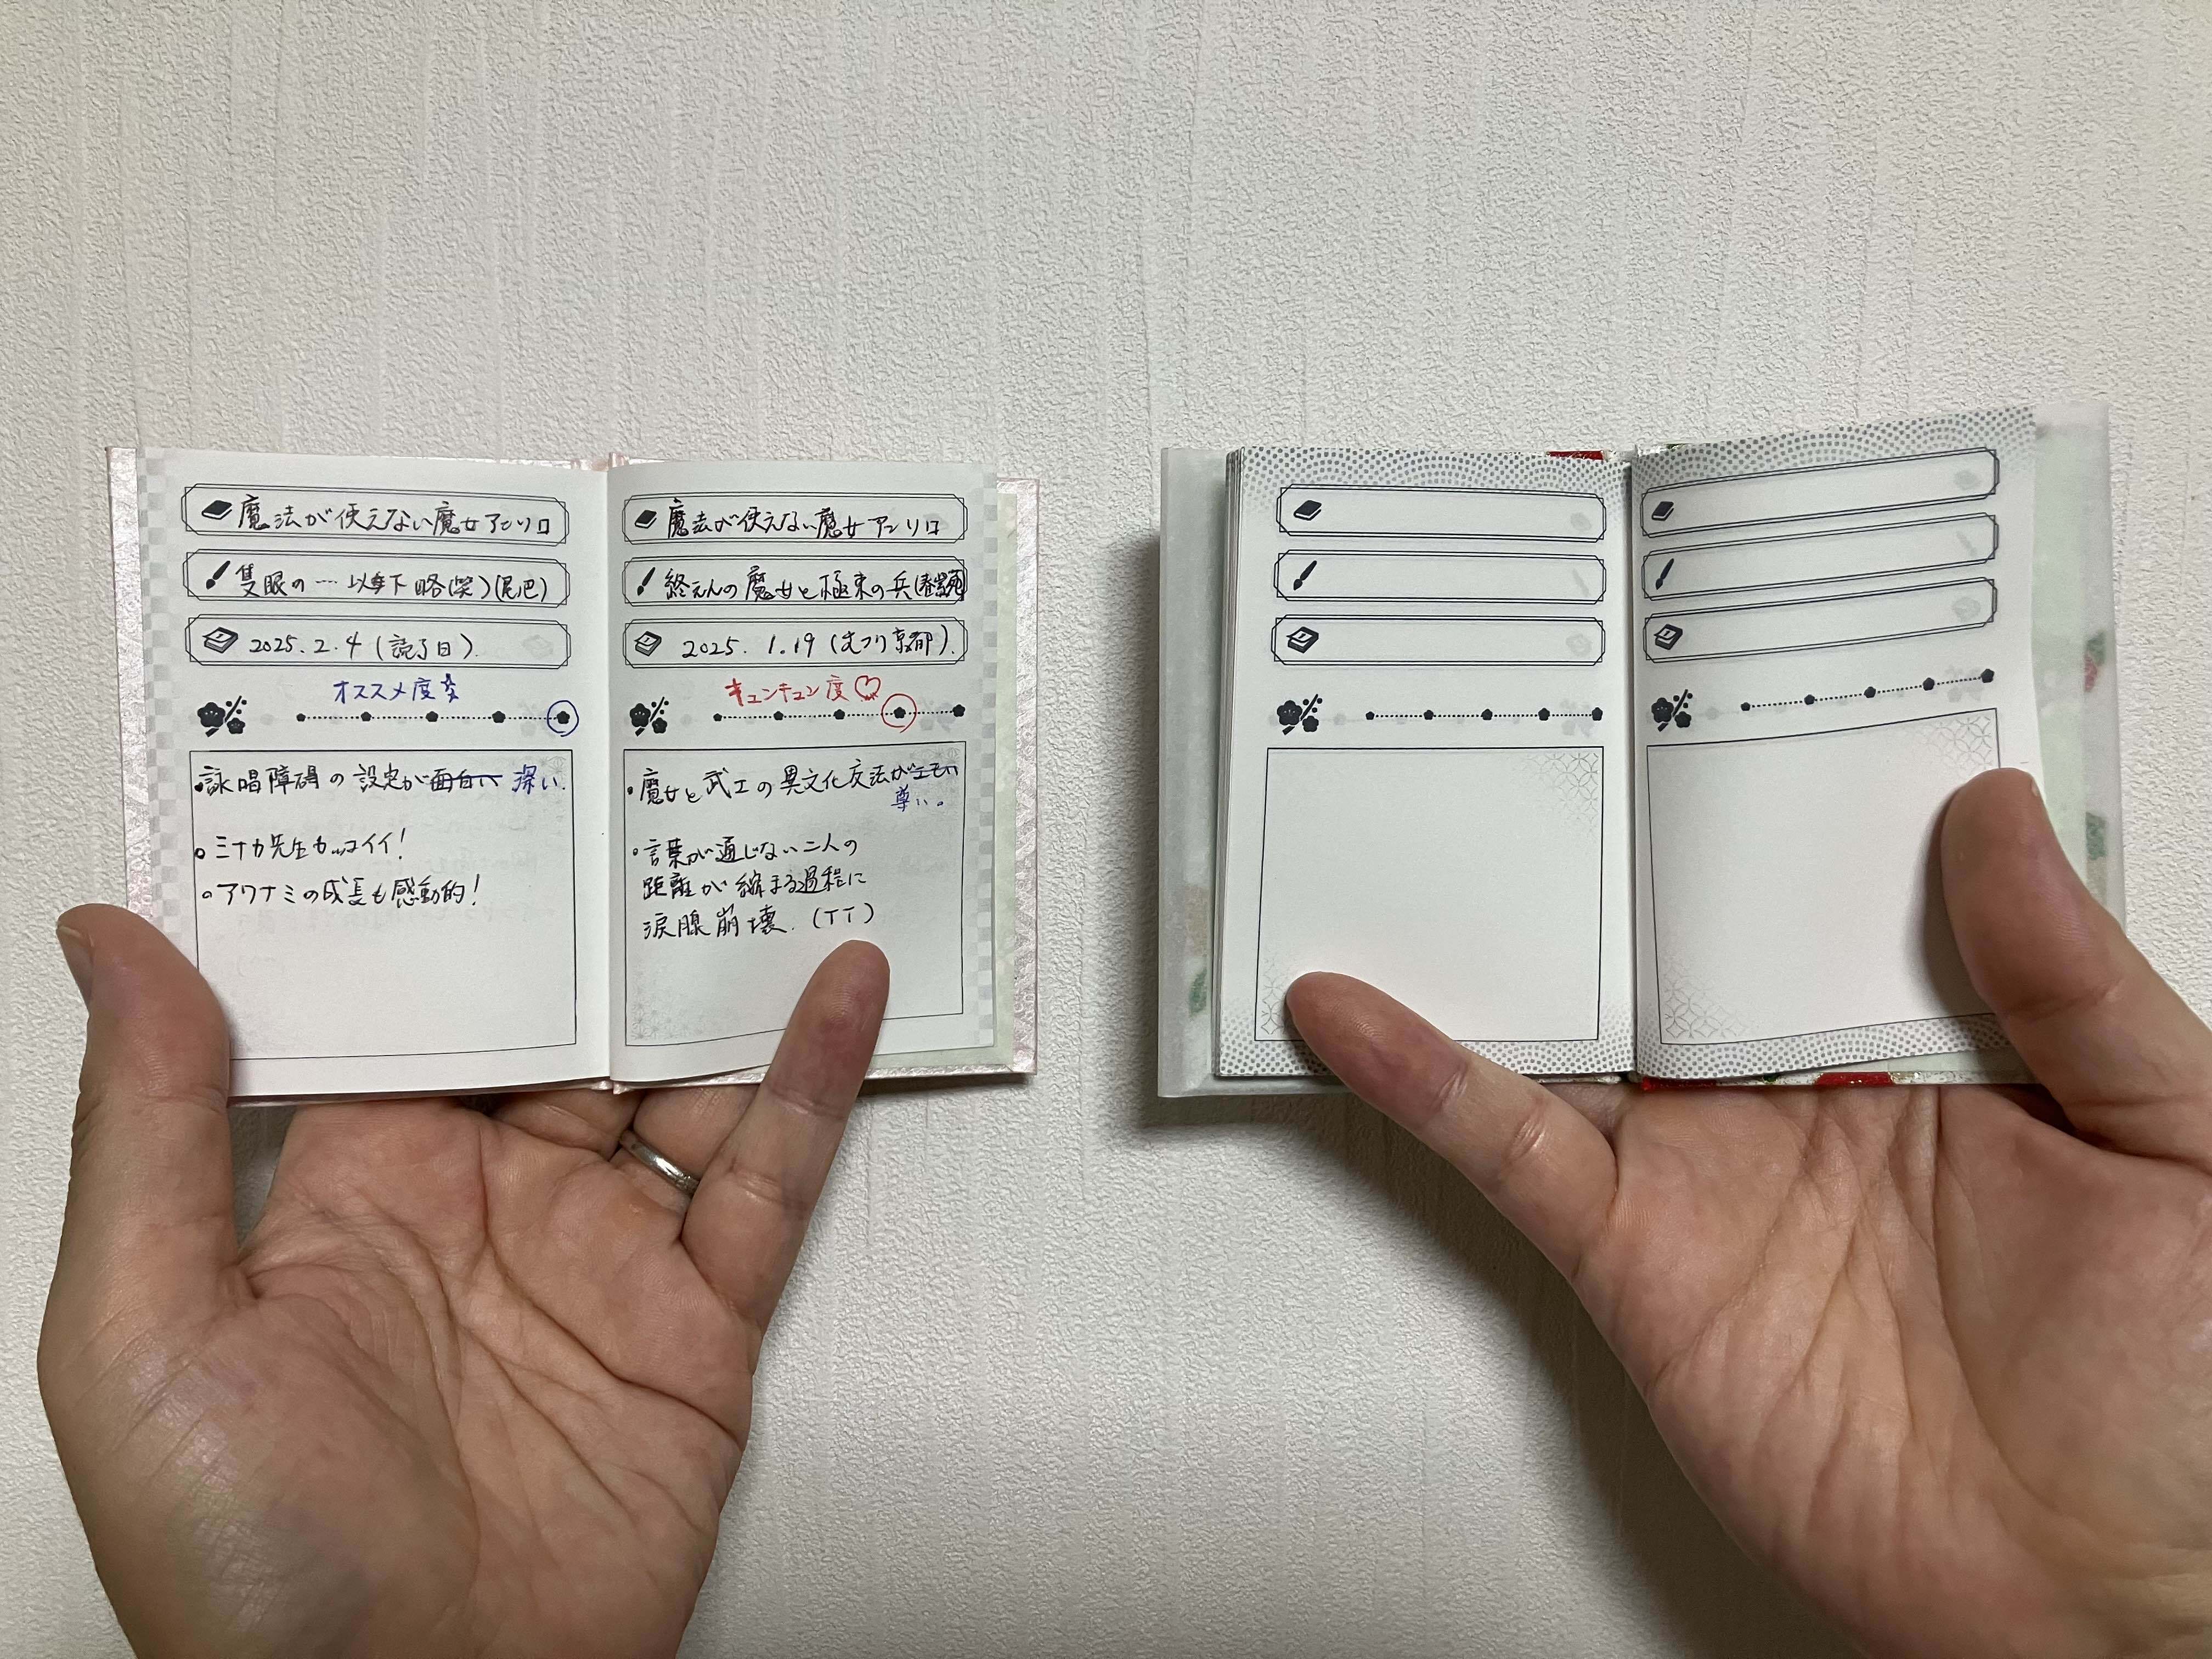 魔法が使えない魔女アンソロ
隻眼の…以下略(笑)(尾巴)
2025.2.4(読了日).
オススメ度☆
・詠唱障碍の設定が面白い 深い.
○ミナカ先生カッコイイ!
○アワナミの成長も感動的!
魔法が使えない魔女アンソロ
終えんの魔女と極東の兵
2025. 1.19(文フリ京都).
キュンキュン度♡
・魔女と武士の異文化交流がエモい
尊い。
○言葉が通じない二人の
距離が縮まる過程に
涙腺崩壊.(TT)